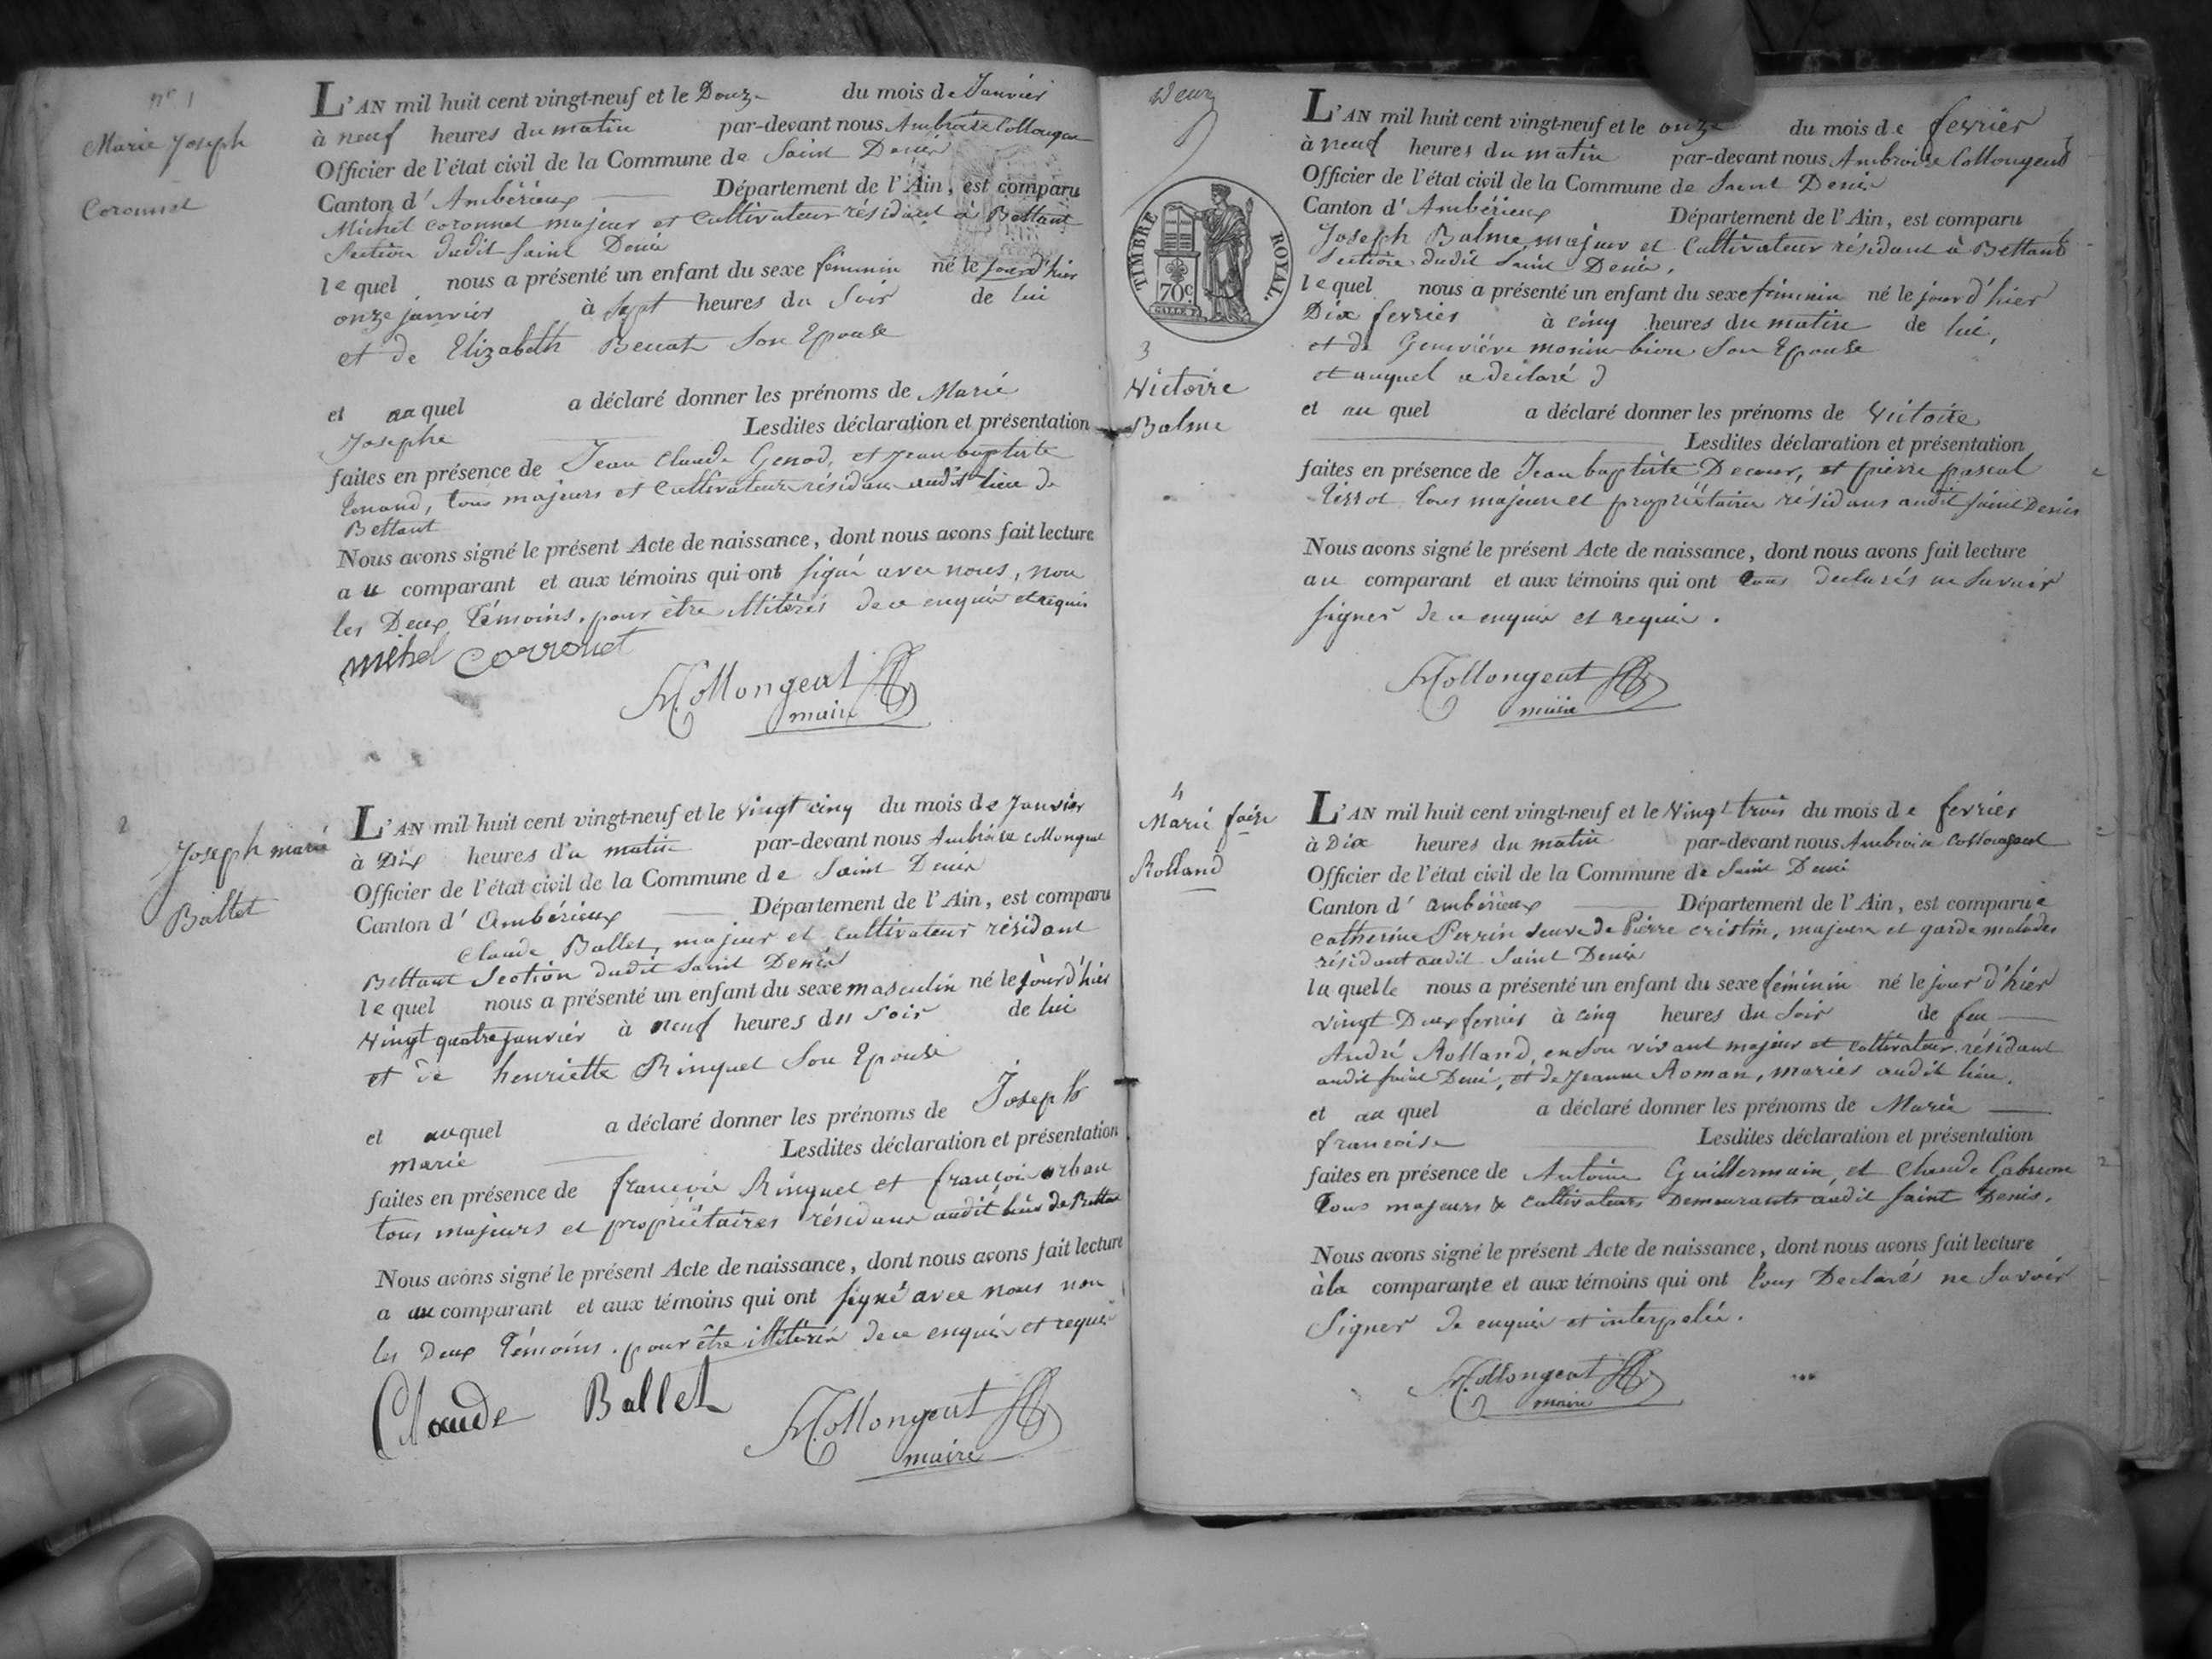 nº 1
Marie Joseph
Coronnet
L'AN mil huit cent vingt-neuf et le Douze du mois de Janvier
à neuf heures du matin par-devant nous Ambroise Collongeat
Officier de l'état civil de la Commune de Saint Denis
Canton d'Ambérieux Département de l'Ain, est comparu
Michel Coronnet majeur et Cultivateur résidant à Bettant
Section dudit Saint Denis
lequel nous a présenté un enfant du sexe féminin né le jour d'hier
onze janvier à sept heures du Soir de lui
et de Elizabeth Son Epouse
et auquel a déclaré donner les prénoms de Marie
Josephe Lesdites déclaration et présentation
faites en présence de Jean Claude Genod, et Jean baptiste
tous majeurs et Cultivateurs résidans audit lieu de
Bettant
Nous avons signé le présent Acte de naissance, dont nous avons fait lecture
au comparant et aux témoins qui ont signé avec nous, non
les Deux témoins. pour être illitérés de ce enquis et requis
michel corronet
Collongeat
maire
2
Joseph marie
Ballet
L'AN mil huit cent vingt-neuf et le vingt cinq du mois de Janvier
à Dix heures du matin par-devant nous Ambroise Collongeat
Officier de l'état civil de la Commune de Saint Denis
Canton d'Ambérieux Département de l'Ain, est comparu
Claude Ballet, majeur et cultivateur résidant
Bettant Section dudit Saint Denis
lequel nous a présenté un enfant du sexe masculin né le jour d'hier
vingt quatre janvier à neuf heures du soir de lui
et de henriette Ringuet Son Epouse
et auquel a déclaré donner les prénoms de Joseph
marie Lesdites déclaration et présentation
faites en présence de françois Ringuet et françois orban
tous majeurs et propriétaires résidans audit lieu de Bettant
Nous avons signé le présent Acte de naissance, dont nous avons fait lecture
a au comparant et aux témoins qui ont signé avec nous non
les Deux témoins. pour être illitérés de ce enquis et requis
Claude Ballet
Collongeat
maire
Deux
TIMBRE ROYAL.
70c
3
Victoire
Balme
L'AN mil huit cent vingt-neuf et le onze du mois de fevrier
à neuf heures du matin par-devant nous Ambroise Collongeat
Officier de l'état civil de la Commune de Saint Denis
Canton d'Ambérieux Département de l'Ain, est comparu
Joseph Balme, majeur et Cultivateur résidant à Bettant
Section dudit Saint Denis,
lequel nous a présenté un enfant du sexe féminin né le jour d'hier
Dix fevrier à cinq heures du matin de lui,
et de Geneviève Son Epouse
et auquel a declaré d
et auquel a déclaré donner les prénoms de Victoire
Lesdites déclaration et présentation
faites en présence de Jean baptiste Decour, et pierre pascal
tissot tous majeurs et propriétaires résidans audit saint Denis
Nous avons signé le présent Acte de naissance, dont nous avons fait lecture
au comparant et aux témoins qui ont tous declarés ne savoir
signer de ce enquis et requis.
Collongeat
maire
4
Marie fçoise
Rolland
L'AN mil huit cent vingt-neuf et le vingt trois du mois de fevrier
à Dix heures du matin par-devant nous Ambroise Collongeat
Officier de l'état civil de la Commune de Saint Denis
Canton d'ambérieux Département de l'Ain, est comparue
Catherine Perrin veuve de Pierre cristin, majeure et garde malades
résidant audit Saint Denis
laquelle nous a présenté un enfant du sexe féminin né le jour d'hier
vingt Deux fevrier à cinq heures du Soir de feu
André Rolland, en son vivant majeur et cultivateur résidant
audit saint Denis, et de Jeanne Roman, mariés audit lieu.
et auquel a déclaré donner les prénoms de Marie
francoise Lesdites déclaration et présentation
faites en présence de Antoine Guillermain, et Claude
Tous majeurs & cultivateurs Demeurants audit Saint Denis.
Nous avons signé le présent Acte de naissance, dont nous avons fait lecture
à la comparante et aux témoins qui ont tous Declarés ne Savoir
Signer de enquis et interpelés.
Collongeat
maire